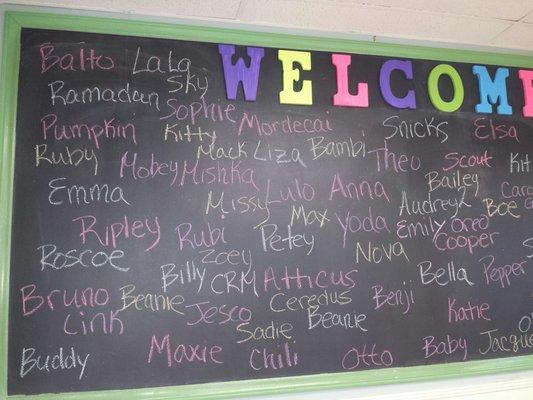 WELCOME
Balto LaLa
Sky
Ramadan Sophie
Pumpkin Kitty Mordecai Snicks Elsa
Ruby Mobey Mack Liza Bambi Theo Scout Kit
Mishka Bailey
Emma Missy Lulo Anna Audrey
Max Boe
Ripley Rubi Petey Yoda Emily Oreo
Cooper
Roscoe Zoey Nova
Billy CRM Atticus Bella Pepper
Bruno Beanie Ceredus Benji
Link Jesco Beanie Katie
Sadie
Buddy Maxie Chili Otto Baby